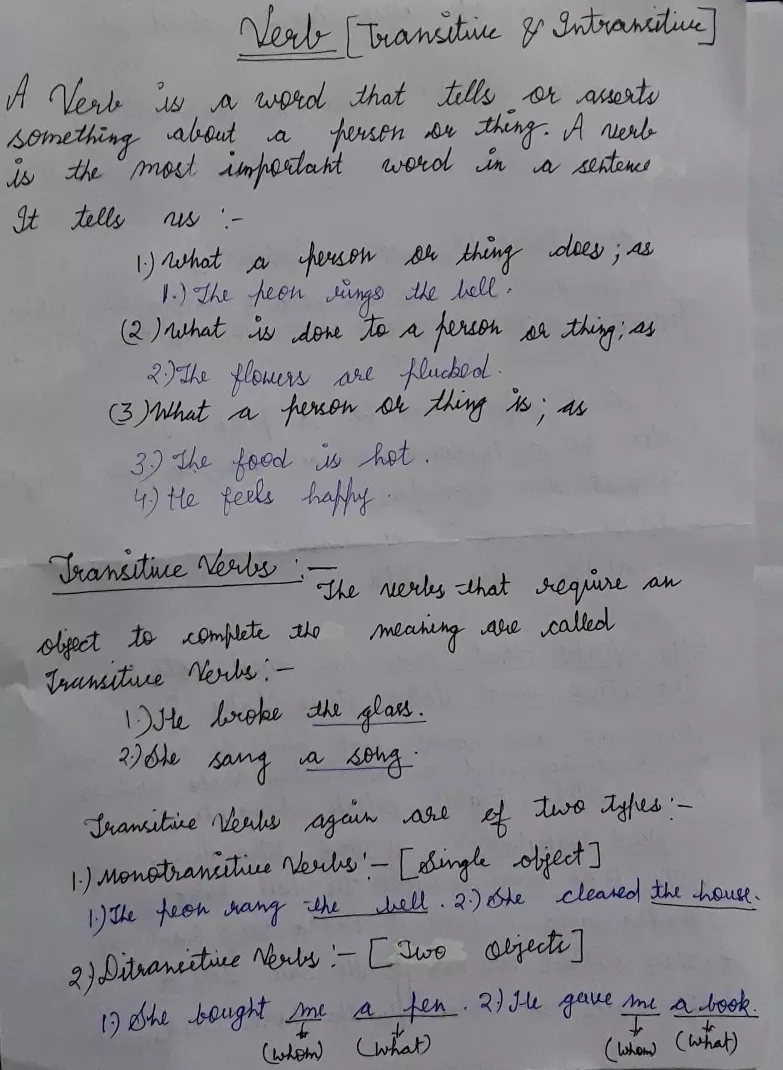 Verb [Transitive & Intransitive]
A Verb is a word that tells or asserts
something about a person or thing. A verb
is the most important word in a sentence
It tells us :-
1.) What a person or thing does; as
1.) The peon rings the bell.
(2) What is done to a person or thing; as
2.) The flowers are plucked.
(3) What a person or thing is; as
3.) The food is hot.
4.) He feels happy.
Transitive Verbs :-
The verbs that require an
object to complete the meaning are called
Transitive Verbs :-
1.) He broke the glass.
2.) She sang a song.
Transitive Verbs again are of two types :-
1.) Monotransitive Verbs :- [Single object]
1.) The peon rang the bell. 2.) She cleared the house.
2.) Ditransitive Verbs :- [Two Objects]
1.) She bought me a pen. 2.) He gave me a book.
(whom) (what) (whom) (what)